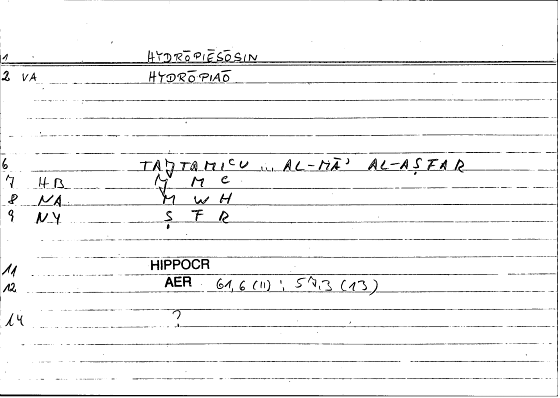 1 HYDRŌPIĒSŌSIN
2 VA HYDRŌPIAŌ
6 TAJTAMIᶜU ... AL-MĀʾ AL-AṢFAR
7 HB J M ᶜ
8 NA M W H
9 NY Ṣ F R
11 HIPPOCR
12 AER 61,6 (11) ; 57,3 (13)
14 ?